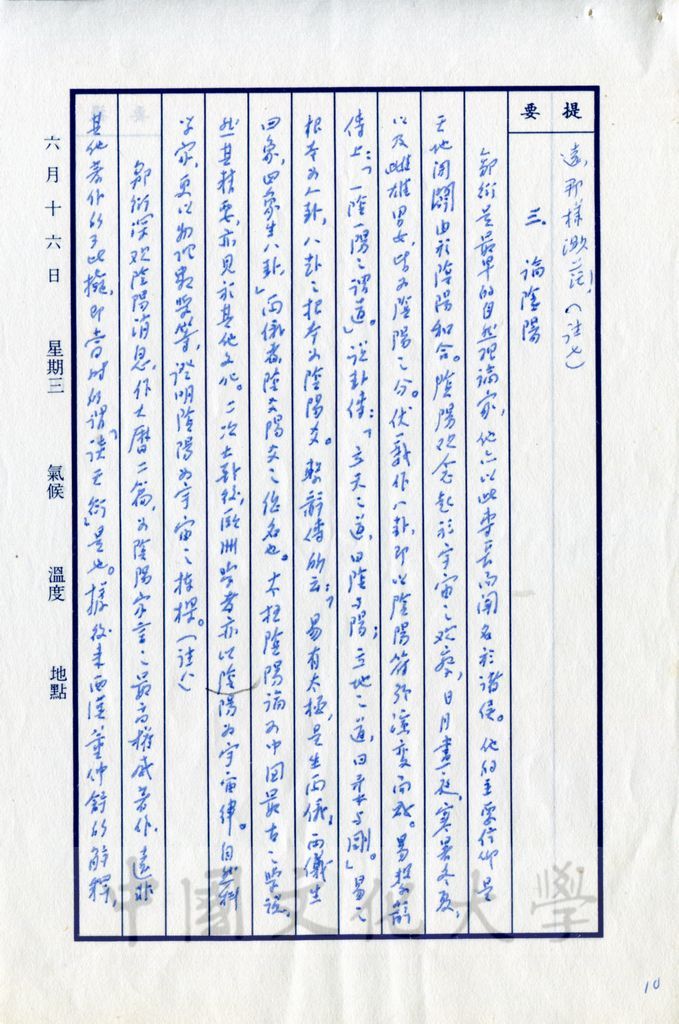 提要
遠,那樣渺茫!(註七)
三、論陰陽
鄒衍是最早的自然理論家,他亦以此專長而聞名於諸侯。他的主要信仰是
天地開闢由於陰陽和合。陰陽观念起於宇宙之观察,日月晝夜,寒暑冬夏,
以及雌雄男女,皆为陰陽之分。伏羲作八卦,即以陰陽符號演變而成。易繫辭
傳上:「一陰一陽之謂道。」說卦傳:「立天之道,曰陰与陽;立地之道,曰柔与剛。」易之
根本为八卦,八卦之根本为陰陽爻。繫辭傳所云:「易有太極,是生両儀,両儀生
四象,四象生八卦,」両儀者陰爻陽爻之總名也。太極陰陽論为中国最古之學說,
然其精要,亦見於其他文化。二次大戰後,歐洲学者亦以陰陽为宇宙律。自然科
学家,更以物理數學等,證明陰陽为宇宙之樞機。(註八)
鄒衍深观陰陽消息,作大曆二篇,为陰陽家言之最高權威著作,遠非
其他著作所可比擬,即當時所謂「談天衍」是也。據後來西漢董仲舒的解釋,
六月十六日 星期三 氣候 溫度 地點
中國文化大學
10